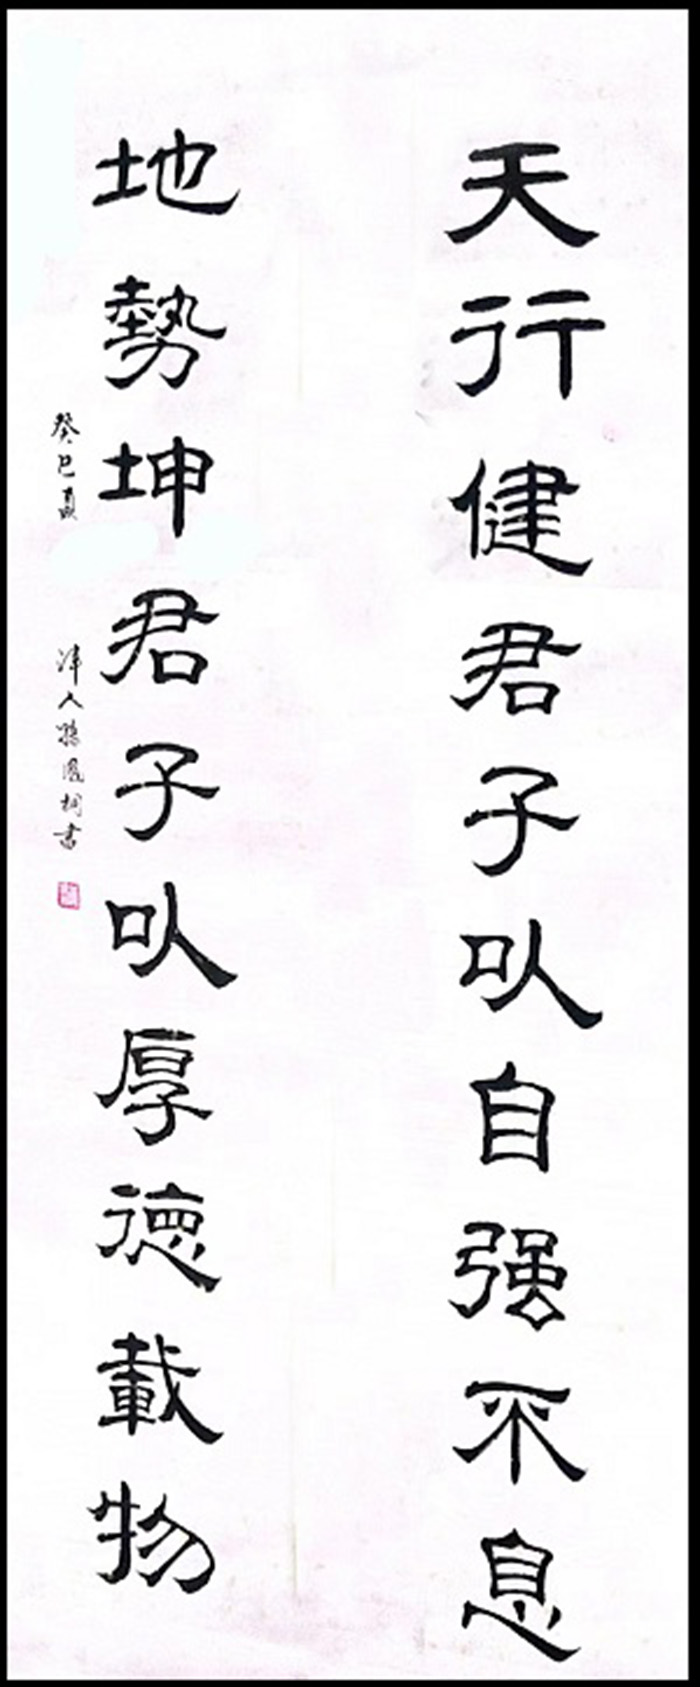 天行健君子以自强不息
地勢坤君子以厚德載物
癸巳夏
津人孫凰桐書